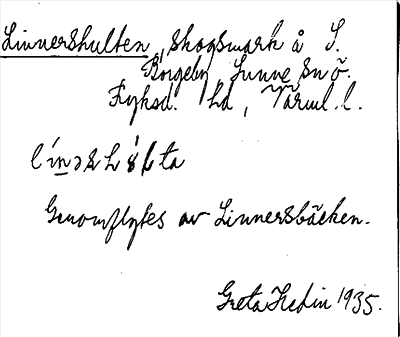 Linnershulten, skogsmark å S.
Borgeby, Sunne sn ö.
Fryksd. hd, Värml. l.
Genomflytes av Linnersbäcken.
Greta Hedin 1935.